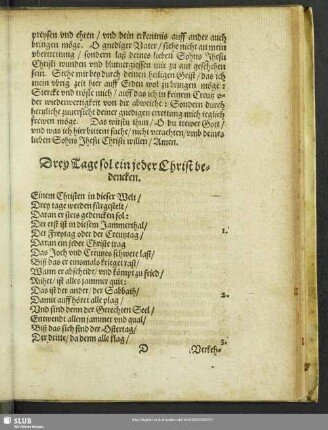 preysen vnd ehren / vnd dein erkentnis auff ander auch
bringen möge. O gnediger Vater / siehe nicht an mein
vbertrettung / sondern laß deines lieben Sohns Jhesu
Christi wunden vnd blutuergiessen mir zu gut geschehen
sein. Stehe mir bey durch deinen heiligen Geist / das ich
mein vbrig zeit hier auff Erden wol zu bringen möge:
Stercke vnd tröste mich / auff das ich in keinem Creutz o-
der wiederwertigkeit von dir abweiche: Sondern durch
hertzliche zuuersicht deiner gnedigen errettung mich teglich
frewen möge. Das wöllstu thun / O du trewer Gott /
vnd was ich hier bitten / suche / nicht verachten / vmb deines
lieben Sohns Jhesu Christi willen / Amen.
Drey Tage sol ein jeder Christ be-
dencken.
Einem Christen in dieser Welt /
Drey tage werden fürgestelt /
Daran er stets gedencken sol:
Der erst ist in diesem Jammerthal /
Der Freytag oder der Creutztag / 1.
Daran ein jeder Christe trag
Das Joch vnd Creutzes schwere last /
Biß das er einsmals krieget rast /
Wann er abscheidt / vnd kömpt zu fried /
Ruhet / ist alles jammer quit:
Das ist der ander / der Sabbath / 2.
Damit auff höret alle plag /
Vnd sind denn der Gerechten Seel /
Entwendt allem jammer vnd qual /
Biß das sich find der Ostertag /
Der dritte / da denn alle klag / 3.
D Verkeh-
SLUB